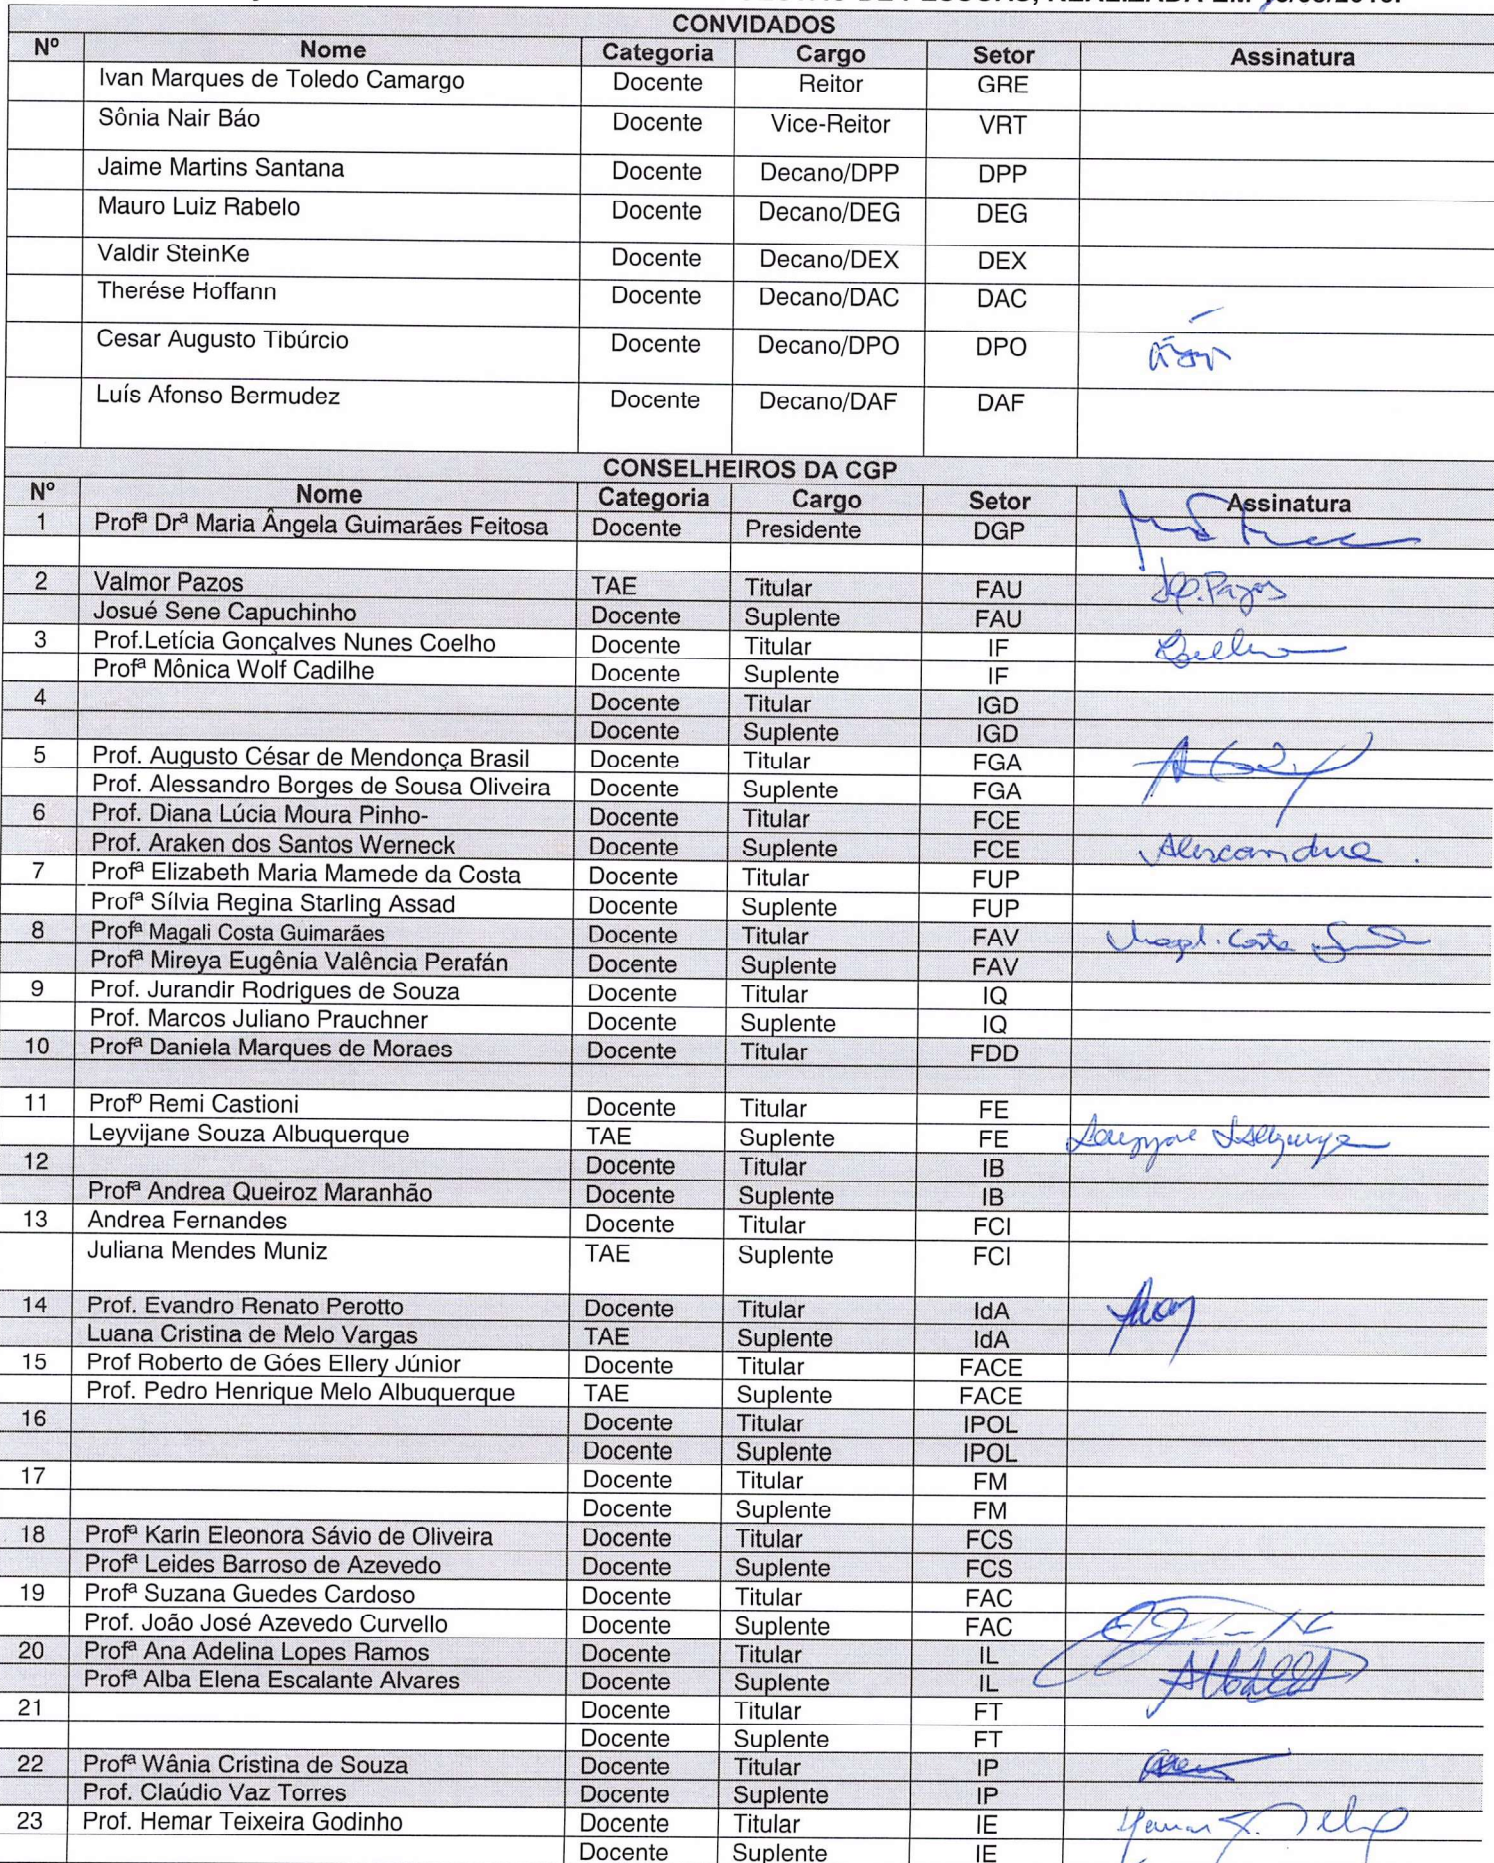 CONVIDADOS
Nº Nome Categoria Cargo Setor Assinatura
Ivan Marques de Toledo Camargo Docente Reitor GRE
Sônia Nair Báo Docente Vice-Reitor VRT
Jaime Martins Santana Docente Decano/DPP DPP
Mauro Luiz Rabelo Docente Decano/DEG DEG
Valdir SteinKe Docente Decano/DEX DEX
Therése Hoffann Docente Decano/DAC DAC
Cesar Augusto Tibúrcio Docente Decano/DPO DPO
Luís Afonso Bermudez Docente Decano/DAF DAF
CONSELHEIROS DA CGP
Nº Nome Categoria Cargo Setor Assinatura
1 Profª Drª Maria Ângela Guimarães Feitosa Docente Presidente DGP
2 Valmor Pazos TAE Titular FAU Pazos
Josué Sene Capuchinho Docente Suplente FAU
3 Prof.Letícia Gonçalves Nunes Coelho Docente Titular IF
Profª Mônica Wolf Cadilhe Docente Suplente IF
4 Docente Titular IGD
Docente Suplente IGD
5 Prof. Augusto César de Mendonça Brasil Docente Titular FGA
Prof. Alessandro Borges de Sousa Oliveira Docente Suplente FGA
6 Prof. Diana Lúcia Moura Pinho- Docente Titular FCE
Prof. Araken dos Santos Werneck Docente Suplente FCE
7 Profª Elizabeth Maria Mamede da Costa Docente Titular FUP
Profª Sílvia Regina Starling Assad Docente Suplente FUP
8 Profª Magali Costa Guimarães Docente Titular FAV Costa
Profª Mireya Eugênia Valência Perafán Docente Suplente FAV
9 Prof. Jurandir Rodrigues de Souza Docente Titular IQ
Prof. Marcos Juliano Prauchner Docente Suplente IQ
10 Profª Daniela Marques de Moraes Docente Titular FDD
11 Profº Remi Castioni Docente Titular FE
Leyvijane Souza Albuquerque TAE Suplente FE
12 Docente Titular IB
Profª Andrea Queiroz Maranhão Docente Suplente IB
13 Andrea Fernandes Docente Titular FCI
Juliana Mendes Muniz TAE Suplente FCI
14 Prof. Evandro Renato Perotto Docente Titular IdA
Luana Cristina de Melo Vargas TAE Suplente IdA
15 Prof Roberto de Góes Ellery Júnior Docente Titular FACE
Prof. Pedro Henrique Melo Albuquerque TAE Suplente FACE
16 Docente Titular IPOL
Docente Suplente IPOL
17 Docente Titular FM
Docente Suplente FM
18 Profª Karin Eleonora Sávio de Oliveira Docente Titular FCS
Profª Leides Barroso de Azevedo Docente Suplente FCS
19 Profª Suzana Guedes Cardoso Docente Titular FAC
Prof. João José Azevedo Curvello Docente Suplente FAC
20 Profª Ana Adelina Lopes Ramos Docente Titular IL
Profª Alba Elena Escalante Alvares Docente Suplente IL
21 Docente Titular FT
Docente Suplente FT
22 Profª Wânia Cristina de Souza Docente Titular IP
Prof. Claúdio Vaz Torres Docente Suplente IP
23 Prof. Hemar Teixeira Godinho Docente Titular IE
Docente Suplente IE